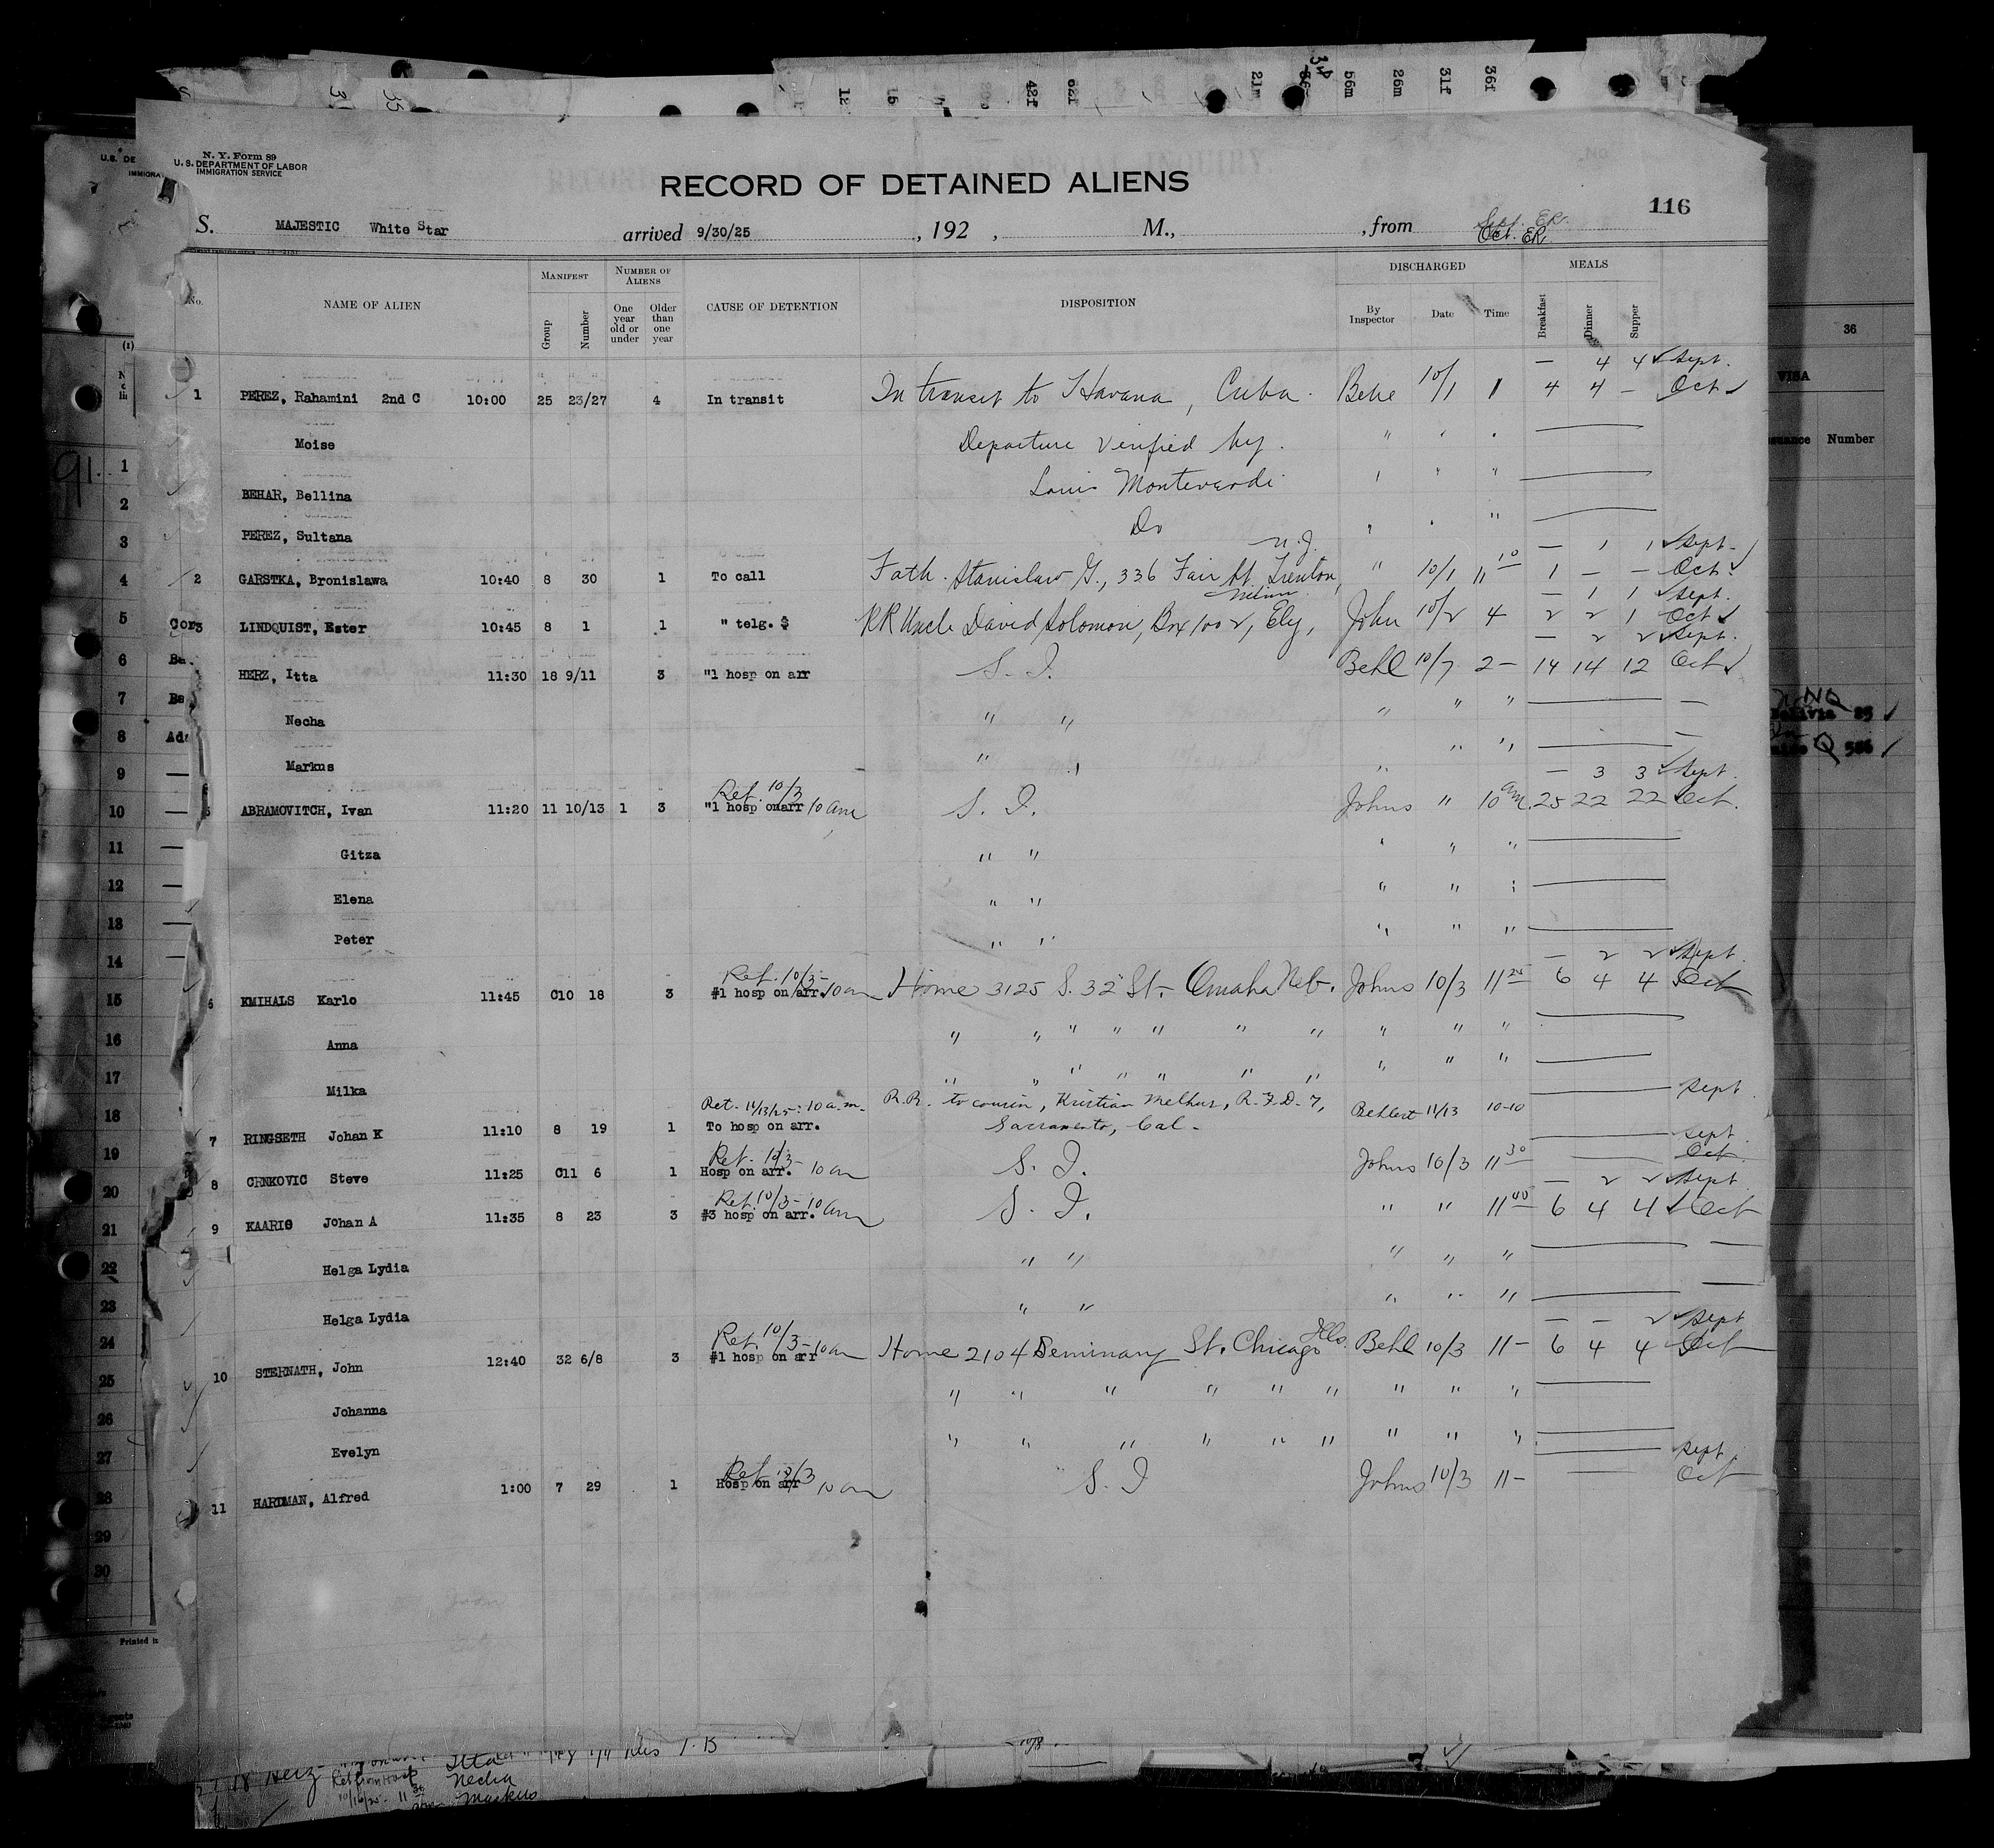 N. Y. Form 89
U. S. DEPARTMENT OF LABOR
IMMIGRATION SERVICE
RECORD OF DETAINED ALIENS
116
S. MAJESTIC White Star arrived 9/30/25 , 192 , M., , from Sept. ER.
Oct. ER
No. NAME OF ALIEN MANIFEST Group Number NUMBER OF ALIENS One year old or under Older than one year CAUSE OF DETENTION DISPOSITION DISCHARGED By Inspector Date Time MEALS Breakfast Dinner Supper
— 4 4 ✓ Sept.
1 PEREZ, Rahamini 2nd C 10:00 25 23/27 4 In transit In transit to Havana, Cuba. Behe 10/1 1 4 4 – Oct ✓
Moise Departure verified by. " " "
BEHAR, Bellina Louis Monteverdi " " "
PEREZ, Sultana Do " " "
N.J. — 1 1 ✓ Sept.
2 GARSTKA, Bronislawa 10:40 8 30 1 To call Fath. Stanislaw G., 336 Fair St. Trenton, " 10/1 11 10 1 – – Oct. ✓
— 1 1 ✓ Sept.
3 LINDQUIST, Ester 10:45 8 1 1 " telg. $ RR Uncle David Solomon, Box 1002, Ely, John 10/2 4 2 2 1 Oct ✓
— 2 2 ✓ Sept.
HERZ, Itta 11:30 18 9/11 3 "1 hosp on arr S. I. Behl 10/7 2– 14 14 12 Oct ✓
Necha " " " " "
Markus " " " " "
Ret. 10/3 — 3 3 ✓ Sept.
5 ABRAMOVITCH, Ivan 11:20 11 10/13 1 3 "1 hosp onarr 10 am S. I. Johns " 10 am. 25 22 22 Oct.
Gitza " " " " "
Elena " " " " "
Peter " " " " "
Ret. 10/3– — 2 2 ✓ Sept.
6 KMIHALS Karlo 11:45 C10 18 3 #1 hosp on arr. 10 am Home 3125 S. 32" St. Omaha Neb. Johns 10/3 11 25 6 4 4 Oct
Anna " " " " " " " " " "
Milka " " " " " " " " " "
Ret. 11/13/25: 10 a.m. R.R. to cousin, Kristian Melhus, R.F.D. 7, Sept
7 RINGSETH Johan K 11:10 8 19 1 To hosp on arr. Sacramento, Cal. 11/13 10-10
Ret. 10/3– Sept.
8 CRNKOVIC Steve 11:25 C11 6 1 Hosp on arr. 10 am S. I. Johns 10/3 11 30 Oct
Ret. 10/3– — 2 2 ✓ Sept
9 KAARIO Johan A 11:35 8 23 3 #3 hosp on arr. 10 am S. I. " " 11 40 6 4 4 ✓ Oct
Helga Lydia " " " " "
Helga Lydia " " " " "
Ret. 10/3– Ills. — — 2 ✓ Sept
10 STERNATH, John 12:40 32 6/8 3 #1 hosp on arr 10 am Home 2104 Seminary St. Chicago Behl 10/3 11– 6 4 4 Oct
Johanna " " " " " " " " "
Evelyn " " " " " " " " "
Ret 10/3 Sept.
11 HARDMAN, Alfred 1:00 7 29 1 Hosp on arr 10 am S. I Johns 10/3 11– Oct
U.S. DE
IMMIGRA
91.
1
2
3
4
5 Cor
6 Ba
7
8
9
10
11
12
13
14
15
16
17
18
19
20
21
22
23
24
25
26
27
28
29
30
Printed
36
VISA
Number
NQ
85 ✓
Q 586 ✓
12
42f
62f
21m
34
56m
26m
31f
36f
18 Herz Itta
Necha
Markus